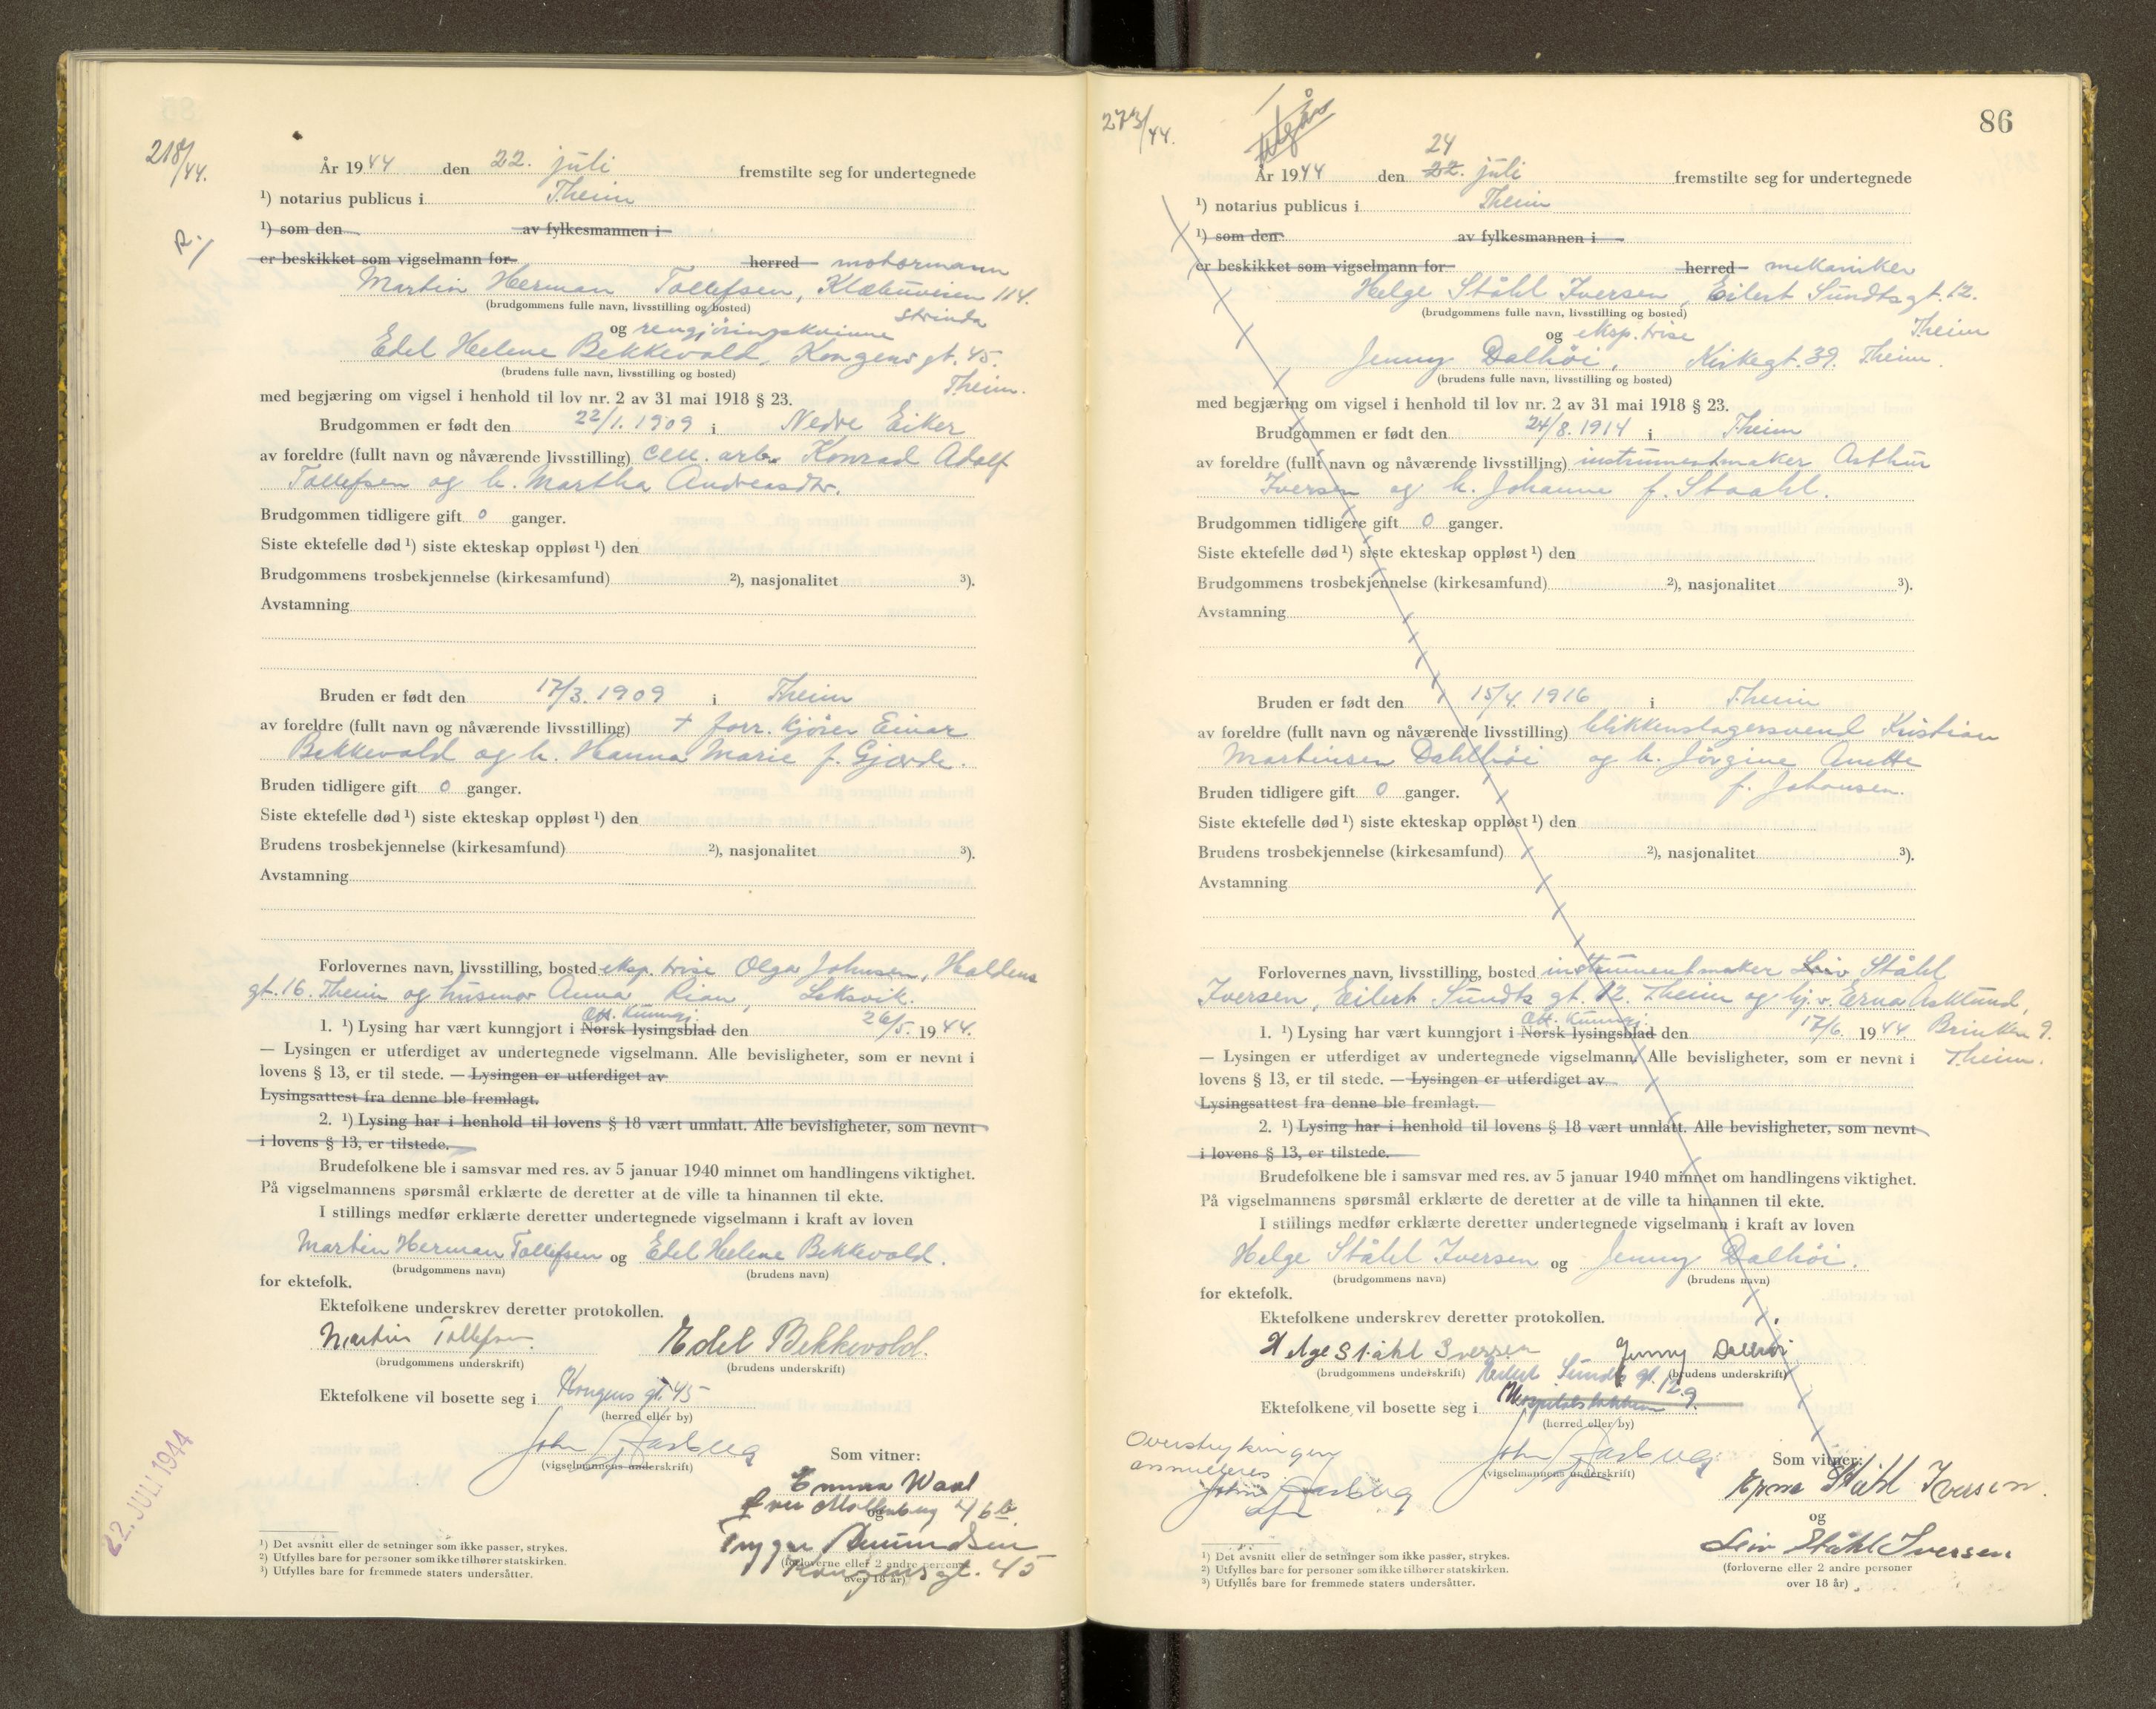 218/44.
År 1944 den 22. juli fremstilte seg for undertegnede
¹) notarius publicus i Theim
¹) som den av fylkesmannen i
er beskikket som vigselmann for herred motormann
Martin Herman Tollefsen, Klæbuveien 114.
(brudgommens fulle navn, livsstilling og bosted)
Strinda
og rengjøringskvinne
Edel Helene Bekkevold, Kongens gt. 45.
(brudens fulle navn, livsstilling og bosted)
Theim.
med begjæring om vigsel i henhold til lov nr. 2 av 31 mai 1918 § 23.
Brudgommen er født den 22/1. 1909 i Nedre Eiker
av foreldre (fullt navn og nåværende livsstilling) cell. arb. Konrad Adolf
Tollefsen og h. Martha Andreasdtr.
Brudgommen tidligere gift 0 ganger.
Siste ektefelle død ¹) siste ekteskap oppløst ¹) den
Brudgommens trosbekjennelse (kirkesamfund) ²), nasjonalitet ³).
Avstamning
Bruden er født den 17/3. 1909 i Theim
av foreldre (fullt navn og nåværende livsstilling) † forr. kjører Einar
Bekkevold og h. Hanna Marie f. Gjærde.
Bruden tidligere gift 0 ganger.
Siste ektefelle død ¹) siste ekteskap oppløst ¹) den
Brudens trosbekjennelse (kirkesamfund) ²), nasjonalitet ³).
Avstamning
Forlovernes navn, livsstilling, bosted eksp. trise Olga Johnsen, Haldens
gt. 16. Theim og husmor Anna Rian, Leksvik.
Off. kunngj.
1. ¹) Lysing har vært kunngjort i Norsk lysingsblad den 26/5. 1944.
— Lysingen er utferdiget av undertegnede vigselmann. Alle bevisligheter, som er nevnt i
lovens § 13, er til stede. — Lysingen er utferdiget av
Lysingsattest fra denne ble fremlagt.
2. ¹) Lysing har i henhold til lovens § 18 vært unnlatt. Alle bevisligheter, som nevnt
i lovens § 13, er tilstede.
Brudefolkene ble i samsvar med res. av 5 januar 1940 minnet om handlingens viktighet.
På vigselmannens spørsmål erklærte de deretter at de ville ta hinannen til ekte.
I stillings medfør erklærte deretter undertegnede vigselmann i kraft av loven
Martin Herman Tollefsen og Edel Helene Bekkevold.
(brudgommens navn) (brudens navn)
for ektefolk.
Ektefolkene underskrev deretter protokollen.
Martin Tollefsen Edel Bekkevold.
(brudgommens underskrift) (brudens underskrift)
Ektefolkene vil bosette seg i Kongens gt. 45
(herred eller by)
22. JULI 1944
John Aasbug
(vigselmannens underskrift)
Som vitner:
Emma Waal
Mollenberg 46 b
og
Trygve Amundsen
(forloverne eller 2 andre personer
over 18 år)
Kongens gt. 45
¹) Det avsnitt eller de setninger som ikke passer, strykes.
²) Utfylles bare for personer som ikke tilhører statskirken.
³) Utfylles bare for fremmede staters undersåtter.
86
273/44.
Utgår
24
År 1944 den 22. juli fremstilte seg for undertegnede
¹) notarius publicus i Theim
¹) som den av fylkesmannen i
er beskikket som vigselmann for herred mekaniker
Helge Ståhl Iversen, Eilert Sundts gt. 12.
(brudgommens fulle navn, livsstilling og bosted)
Theim
og eksp. trise
Jenny Dalhöi, Kirkegt. 39. Theim.
(brudens fulle navn, livsstilling og bosted)
med begjæring om vigsel i henhold til lov nr. 2 av 31 mai 1918 § 23.
Brudgommen er født den 24/8. 1914 i Theim
av foreldre (fullt navn og nåværende livsstilling) instrumentmaker Arthur
Iversen og h. Johanne f. Staahl.
Brudgommen tidligere gift 0 ganger.
Siste ektefelle død ¹) siste ekteskap oppløst ¹) den
Brudgommens trosbekjennelse (kirkesamfund) ²), nasjonalitet ³).
Avstamning
Bruden er født den 15/4. 1916 i Theim
av foreldre (fullt navn og nåværende livsstilling) blikkenslagersvend Kristian
Martinsen Dahlhöi og h. Jörgine Anette
f. Johansen.
Bruden tidligere gift 0 ganger.
Siste ektefelle død ¹) siste ekteskap oppløst ¹) den
Brudens trosbekjennelse (kirkesamfund) ²), nasjonalitet ³).
Avstamning
Forlovernes navn, livsstilling, bosted instrumentmaker Leiv Ståhl
Iversen, Eilert Sundts gt. 12. Theim og hj.v. Erna Asklund,
Off. kunngj.
1. ¹) Lysing har vært kunngjort i Norsk lysingsblad den 17/6. 1944. Brinken 9.
Theim.
— Lysingen er utferdiget av undertegnede vigselmann. Alle bevisligheter, som er nevnt i
lovens § 13, er til stede. — Lysingen er utferdiget av
Lysingsattest fra denne ble fremlagt.
2. ¹) Lysing har i henhold til lovens § 18 vært unnlatt. Alle bevisligheter, som nevnt
i lovens § 13, er tilstede.
Brudefolkene ble i samsvar med res. av 5 januar 1940 minnet om handlingens viktighet.
På vigselmannens spørsmål erklærte de deretter at de ville ta hinannen til ekte.
I stillings medfør erklærte deretter undertegnede vigselmann i kraft av loven
Helge Ståhl Iversen og Jenny Dalhöi.
(brudgommens navn) (brudens navn)
for ektefolk.
Ektefolkene underskrev deretter protokollen.
Helge Ståhl Iversen Jenny Dalhöi
(brudgommens underskrift) (brudens underskrift)
Eilert Sundts gt. 12.
Ektefolkene vil bosette seg i Hospitalsløkken 9.
(herred eller by)
Overstrykningen
annulleres
John Aasbug
John Aasbug
(vigselmannens underskrift)
Som vitner:
Erna Ståhl Iversen.
og
Leiv Ståhl Iversen
(forloverne eller 2 andre personer
over 18 år)
¹) Det avsnitt eller de setninger som ikke passer, strykes.
²) Utfylles bare for personer som ikke tilhører statskirken.
³) Utfylles bare for fremmede staters undersåtter.